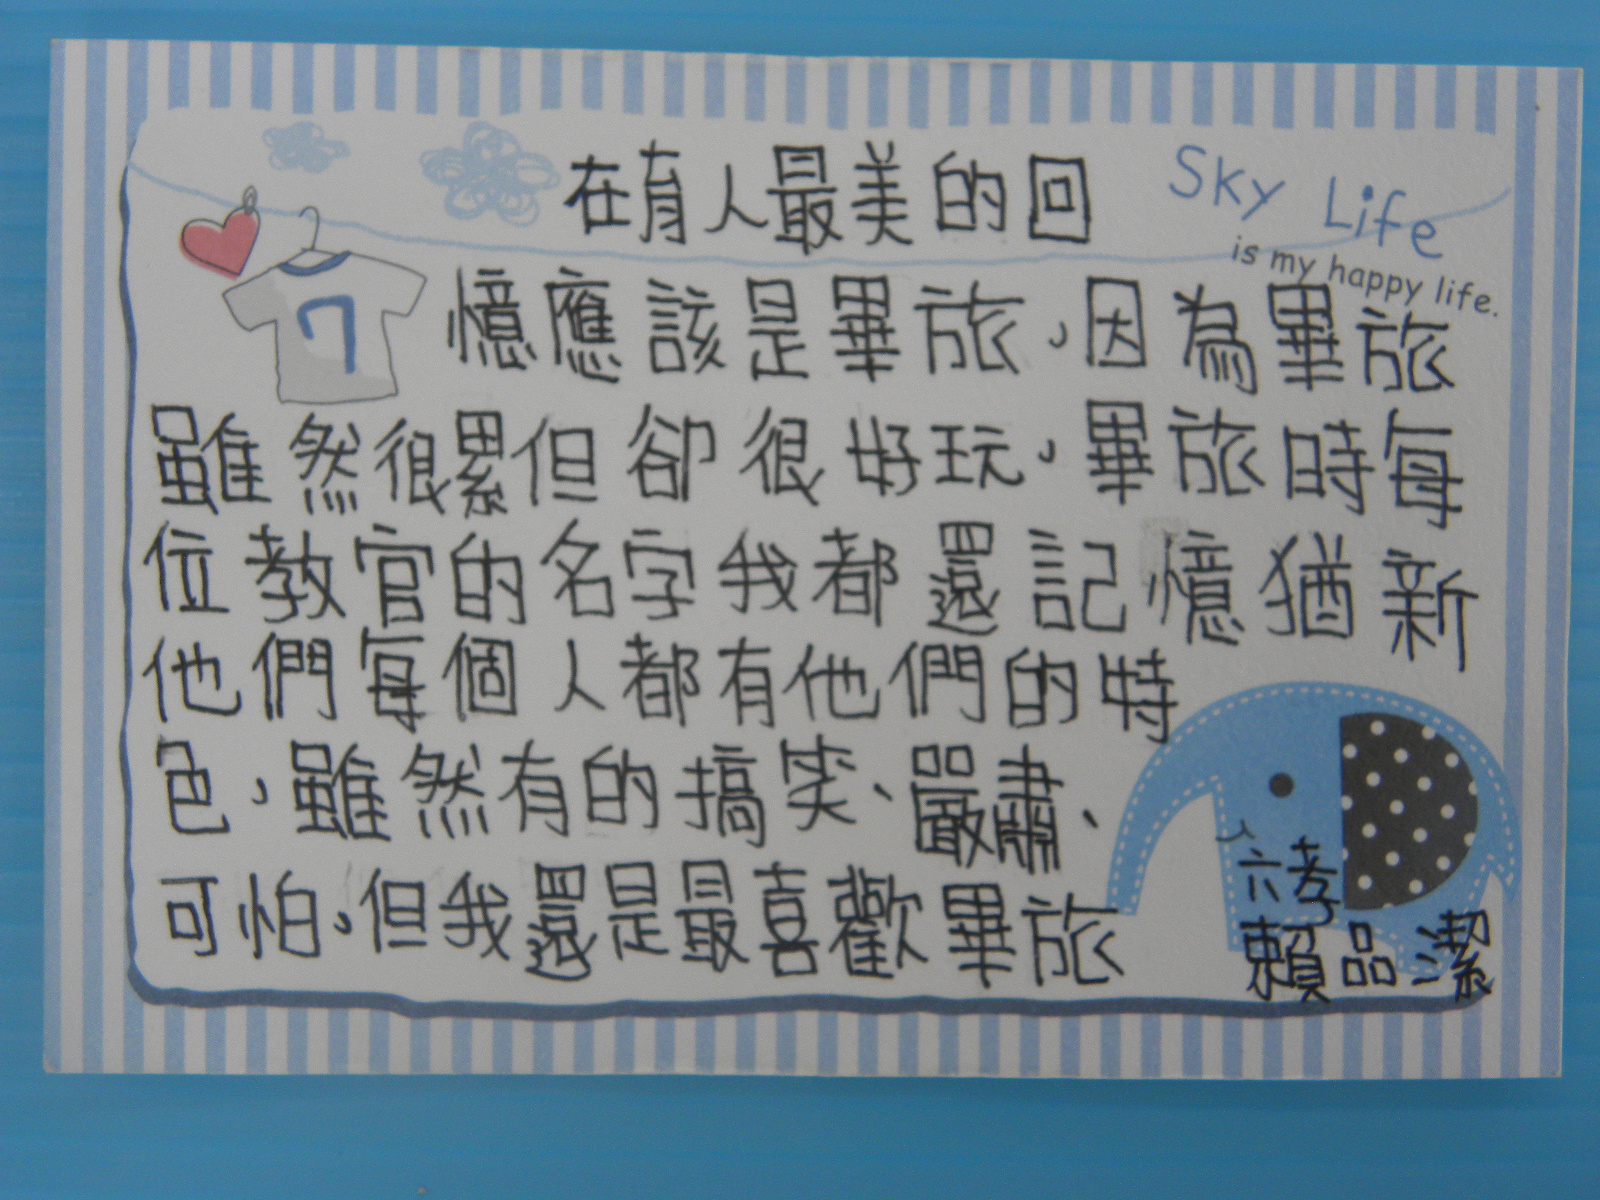 在育人最美的回
Sky Life
is my happy life.
憶應該是畢旅,因為畢旅
雖然很累但卻很好玩,畢旅時每
位教官的名字我都還記憶猶新
他們每個人都有他們的特
色,雖然有的搞笑、嚴肅、
可怕,但我還是最喜歡畢旅
六孝
賴品潔